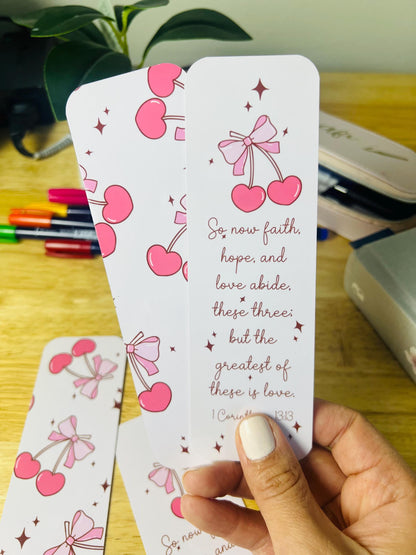 So now faith,
hope, and
love abide,
these three;
but the
greatest of
these is love.
1 Corin 13:13
So